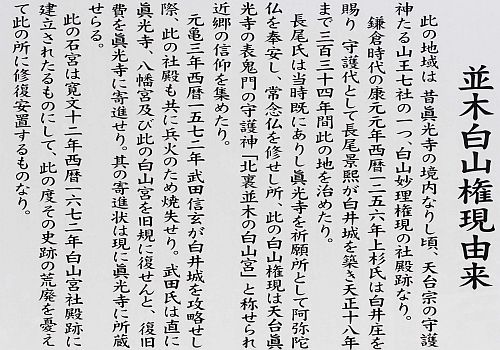 並木白山権現由来
此の地域は 昔眞光寺の境内なりし頃、天台宗の守護
神たる山王七社の一つ、白山妙理権現の社殿跡なり。
鎌倉時代の康元元年西暦一二五六年上杉氏は白井庄を
賜り 守護代として長尾景熙が白井城を築き天正十八年
まで三百三十四年間此の地を治めたり。
長尾氏は当時既にありし眞光寺を祈願所として阿弥陀
仏を奉安し、常念仏を修せし所、此の白山権現は天台眞
光寺の表鬼門の守護神「北裏並木の白山宮」と称せられ
近郷の信仰を集めたり。
元亀三年西暦一五七二年 武田信玄が白井城を攻略せし
際、此の社殿も共に兵火のため焼失せり。武田氏は直に
眞光寺、八幡宮及び此の白山宮を旧規に復せんと、復旧
費を眞光寺に寄進せり。其の寄進状は現に眞光寺に所蔵
せらる。
此の石宮は寛文十二年西暦一六七二年白山宮社殿跡に
建立されたるものにして、此の度その史跡の荒廃を憂え
て此の所に修復安置するものなり。